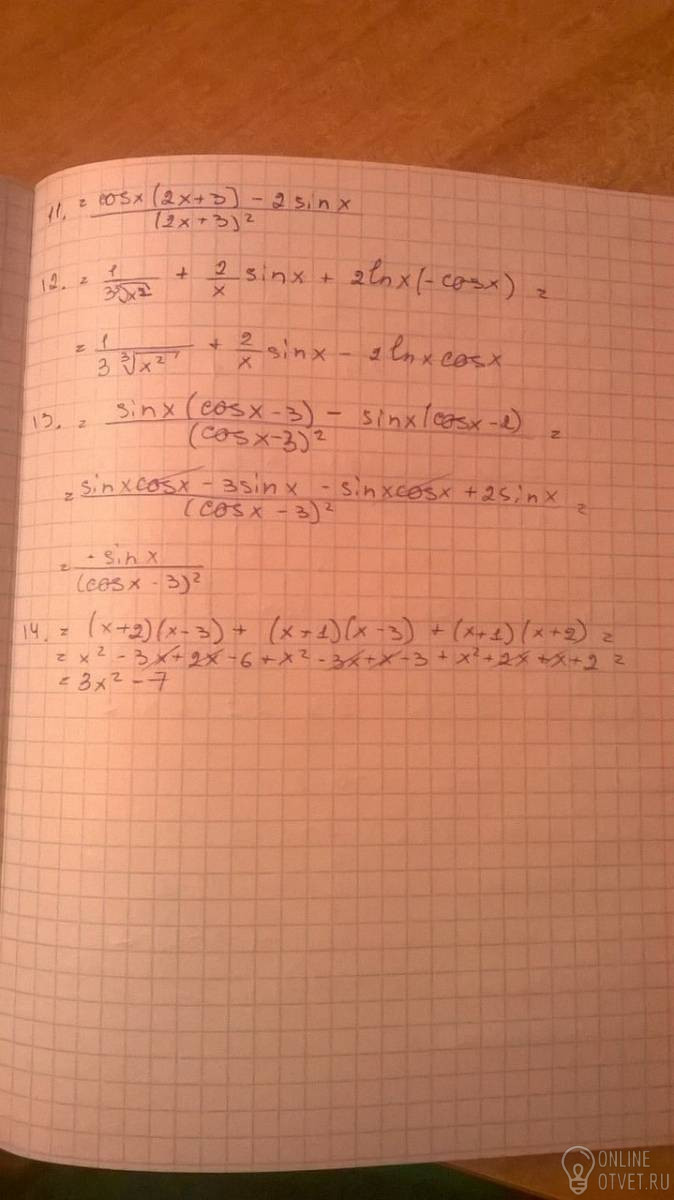 11. = cosx(2x+3) - 2sinx / (2x+3)²
12. = 1 / 3∛x² + 2/x sinx + 2lnx(-cosx) =
= 1 / 3∛x² + 2/x sinx - 2lnxcosx
13. = sinx(cosx-3) - sinx(cosx-2) / (cosx-3)² =
= sinxcosx - 3sinx - sinxcosx + 2sinx / (cosx-3)² =
= -sinx / (cosx-3)²
14. = (x+2)(x-3) + (x+1)(x-3) + (x+1)(x+2) =
= x² - 3x + 2x - 6 + x² - 3x + x - 3 + x² + 2x + x + 2 =
= 3x² - 7
ONLINE
OTVET.RU